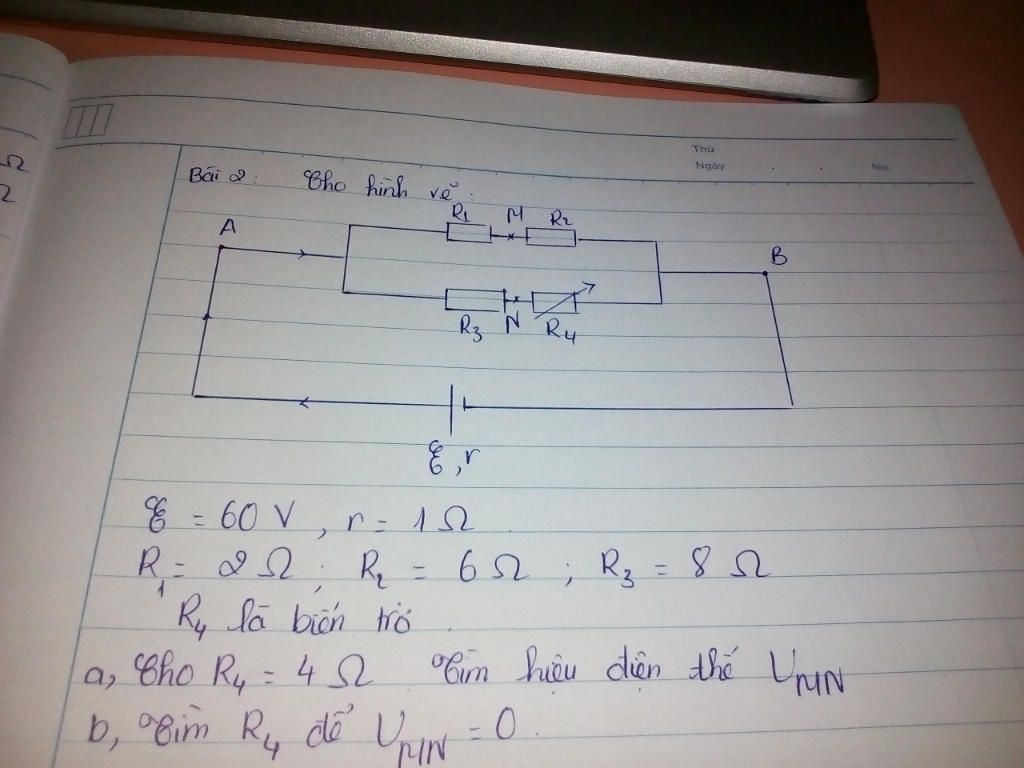 Ω
Ω
Thứ
Ngày . . No.
Bài 2: Cho hình vẽ:
R1 M R2
A
B
R3 N R4
ℰ, r
ℰ = 60 V, r = 1 Ω.
R1 = 2 Ω; R2 = 6 Ω; R3 = 8 Ω
R4 là biến trở.
a, Cho R4 = 4 Ω Tìm hiệu điện thế UMN
b, Tìm R4 để UMN = 0.